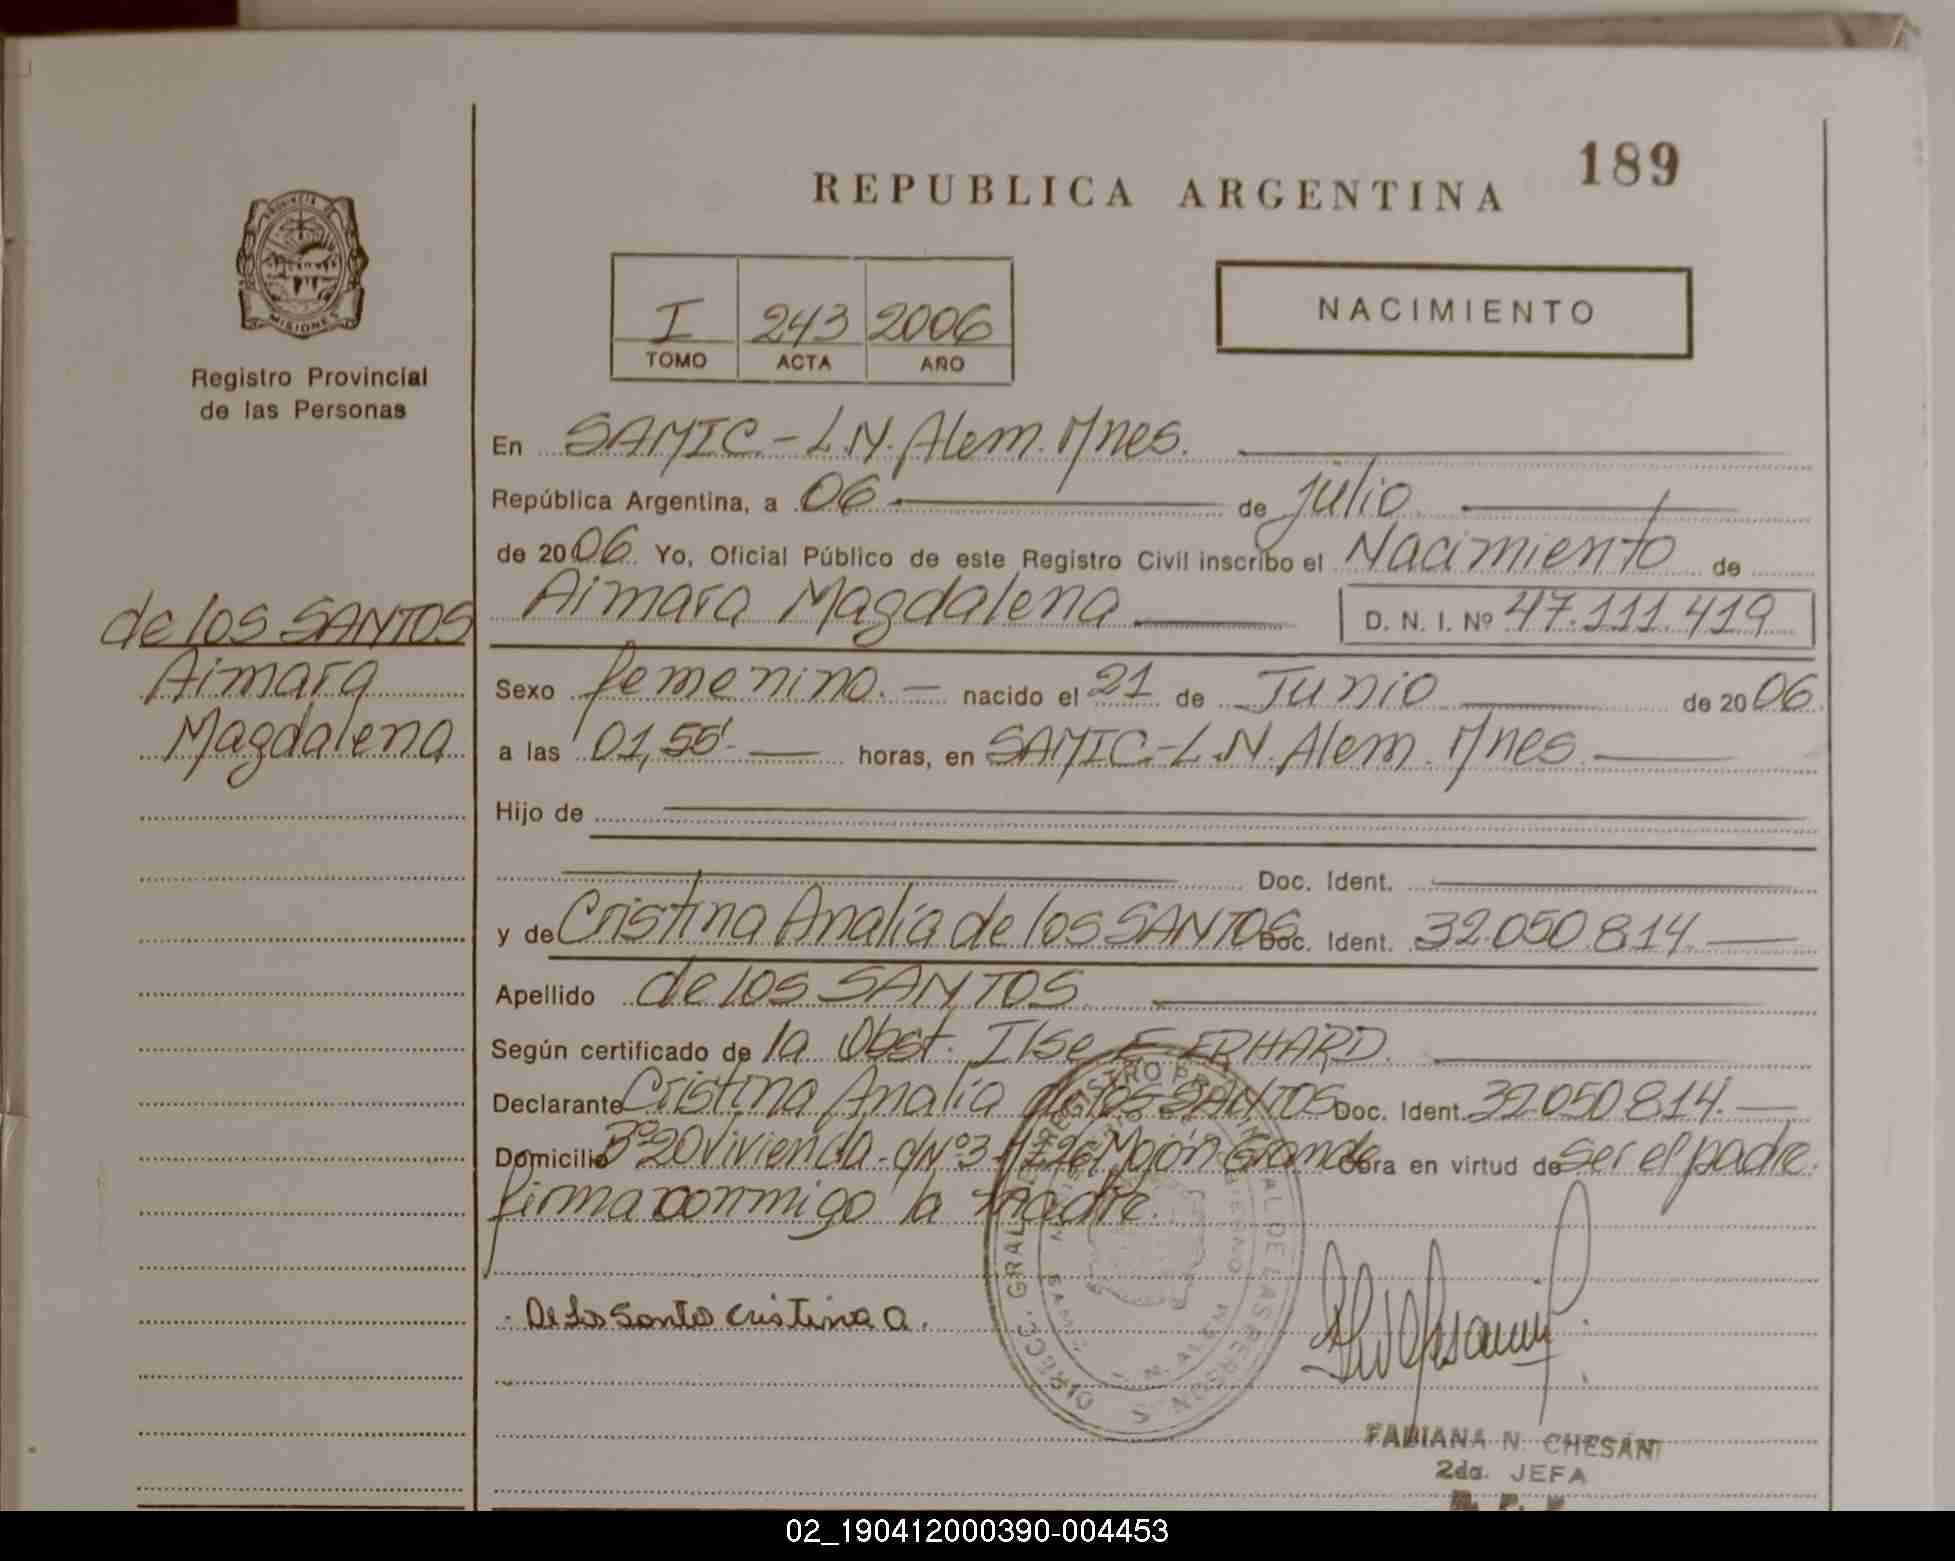 189
REPUBLICA ARGENTINA
PROVINCIA DE
MISIONES
Registro Provincial
de las Personas
I 243 2006
TOMO ACTA AÑO
NACIMIENTO
En SAMIC - L.N. Alem. Mnes.
República Argentina, a 06 de julio
de 2006. Yo, Oficial Público de este Registro Civil inscribo el Nacimiento de
Aimara Magdalena D. N. I. Nº 47.111.419
de los SANTOS
Aimara
Magdalena
Sexo femenino. nacido el 21 de Junio de 2006
a las 01,55' horas, en SAMIC - L.N. Alem. Mnes
Hijo de
Doc. Ident.
y de Cristina Analía de los SANTOS Doc. Ident. 32.050.814
Apellido de los SANTOS
Según certificado de la Obst. Ilse E. ERHARD.
Declarante Cristina Analía de los SANTOS Doc. Ident. 32.050.814.
Domicilio 20 Vivienda Nº 3 Mojón Grande Obra en virtud de ser el padre.
firma conmigo la madre.
De Los Santos Cristina A.
DIRECC. GRAL. DE REGISTRO PROVINCIAL DE LAS PERSONAS
L. N. ALEM
FABIANA N. CHESANI
2da. JEFA
02_190412000390-004453